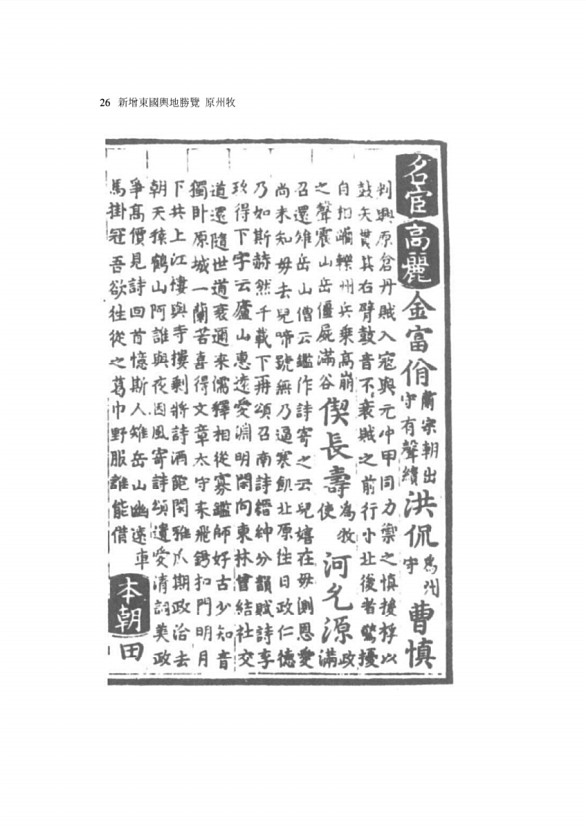 26 新增東國輿地勝覽 原州牧
名宦 高麗 金富佾 肅宗朝出守有聲績 洪侃 爲州守 曹愼
判興原倉丹賊入寇與元冲甲同力禦之愼援桴以
鼓矢貫其右臂鼓音不衰賊之前行小北後者驚擾
自相蹂轢州兵乗高崩之聲震山岳僵屍滿谷 偰長壽 爲牧使 河允源 政滿
召還雉岳山僧云鑑作詩寄之云兒嬉在毋側恩愛
尚未知毋去兒啼號無乃逼寒飢北原往日政仁德
乃如斯赫然千載下再頌召南詩搢紳分韻賦詩李
玖得下字云廬山惠遠愛淵明閑向東林曾結社交
道還隨世道衰邇來儒釋相從寡鑑師好古少知音
獨卧原城一蘭若喜得文章太守来飛錫扣門明月
下共上江樓與寺樓剩將詩酒飽閑雅瓜期政治去
朝天猿鶴山阿誰與夜因風寄詩頌遺愛清詞美政
爭高價見詩回首憶斯人雉岳山幽遠車
馬掛冠吾欲往從之葛巾野服誰能借
本朝 田